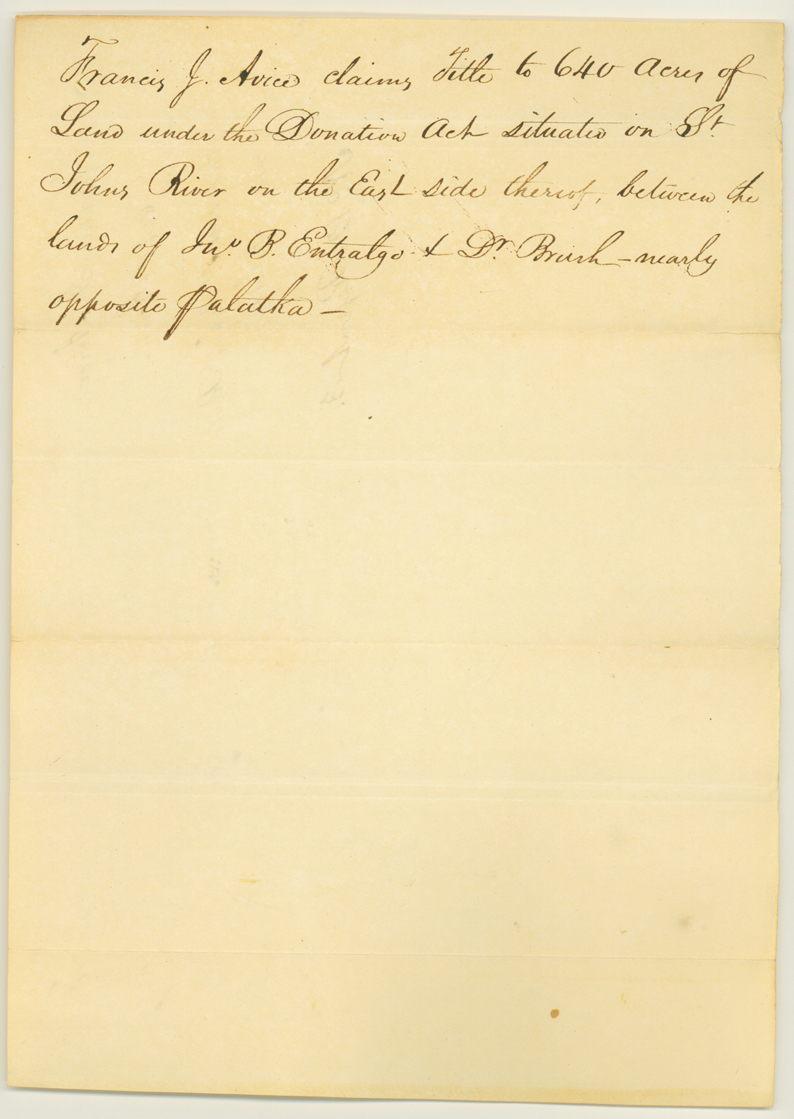 Francis J. Avice claims Title to 640 Acres of
Land under the Donation Act situated on St
Johns River on the East side thereof, between the
lands of Jno. B. Entralgo & Dr. Brush – nearly
opposite Palatka –